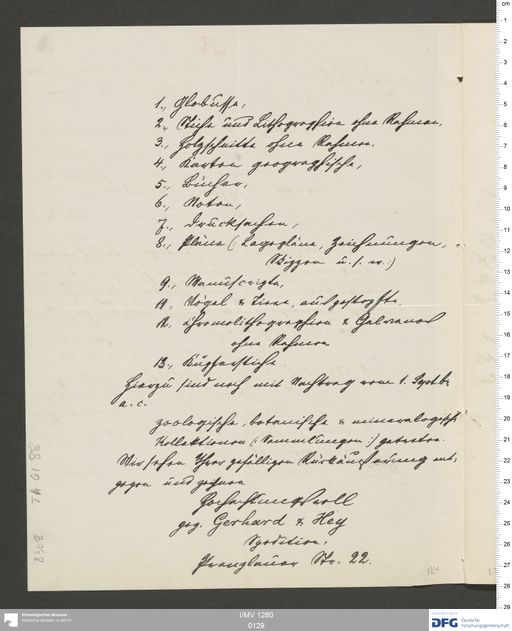 1., Globusse,
2., Stiche und Lithographien ohne Rahmen,
3., Holzschnitte ohne Rahmen,
4., Karten geographische,
5., Bücher,
6., Noten,
7., Drucksachen,
8., Pläne (: Lagepläne, Zeichnungen,
Skizzen u. s. w. :)
9., Manuscripte,
11., Vögel & Tiere, ausgestopfte,
12., Chromolithographien & Galvanos
ohne Rahmen
13., Kupferstiche
Hierzu sind noch mit Nachtrag vom 1. Septbr
a. c.
zoologische, botanische & mineralogische
Kollektionen (: Sammlungen :) getreten.
Wir sehen Ihrer gefälligen Rückäusserung ent-
gegen und zeichnen
Hochachtungsvoll
gez. Gerhard & Hey
Spedition,
Prenzlauer Str. 22.
124
Ethnologisches Museum
Staatliche Museen zu Berlin
I/MV 1280
0129
DFG Deutsche
Forschungsgemeinschaft